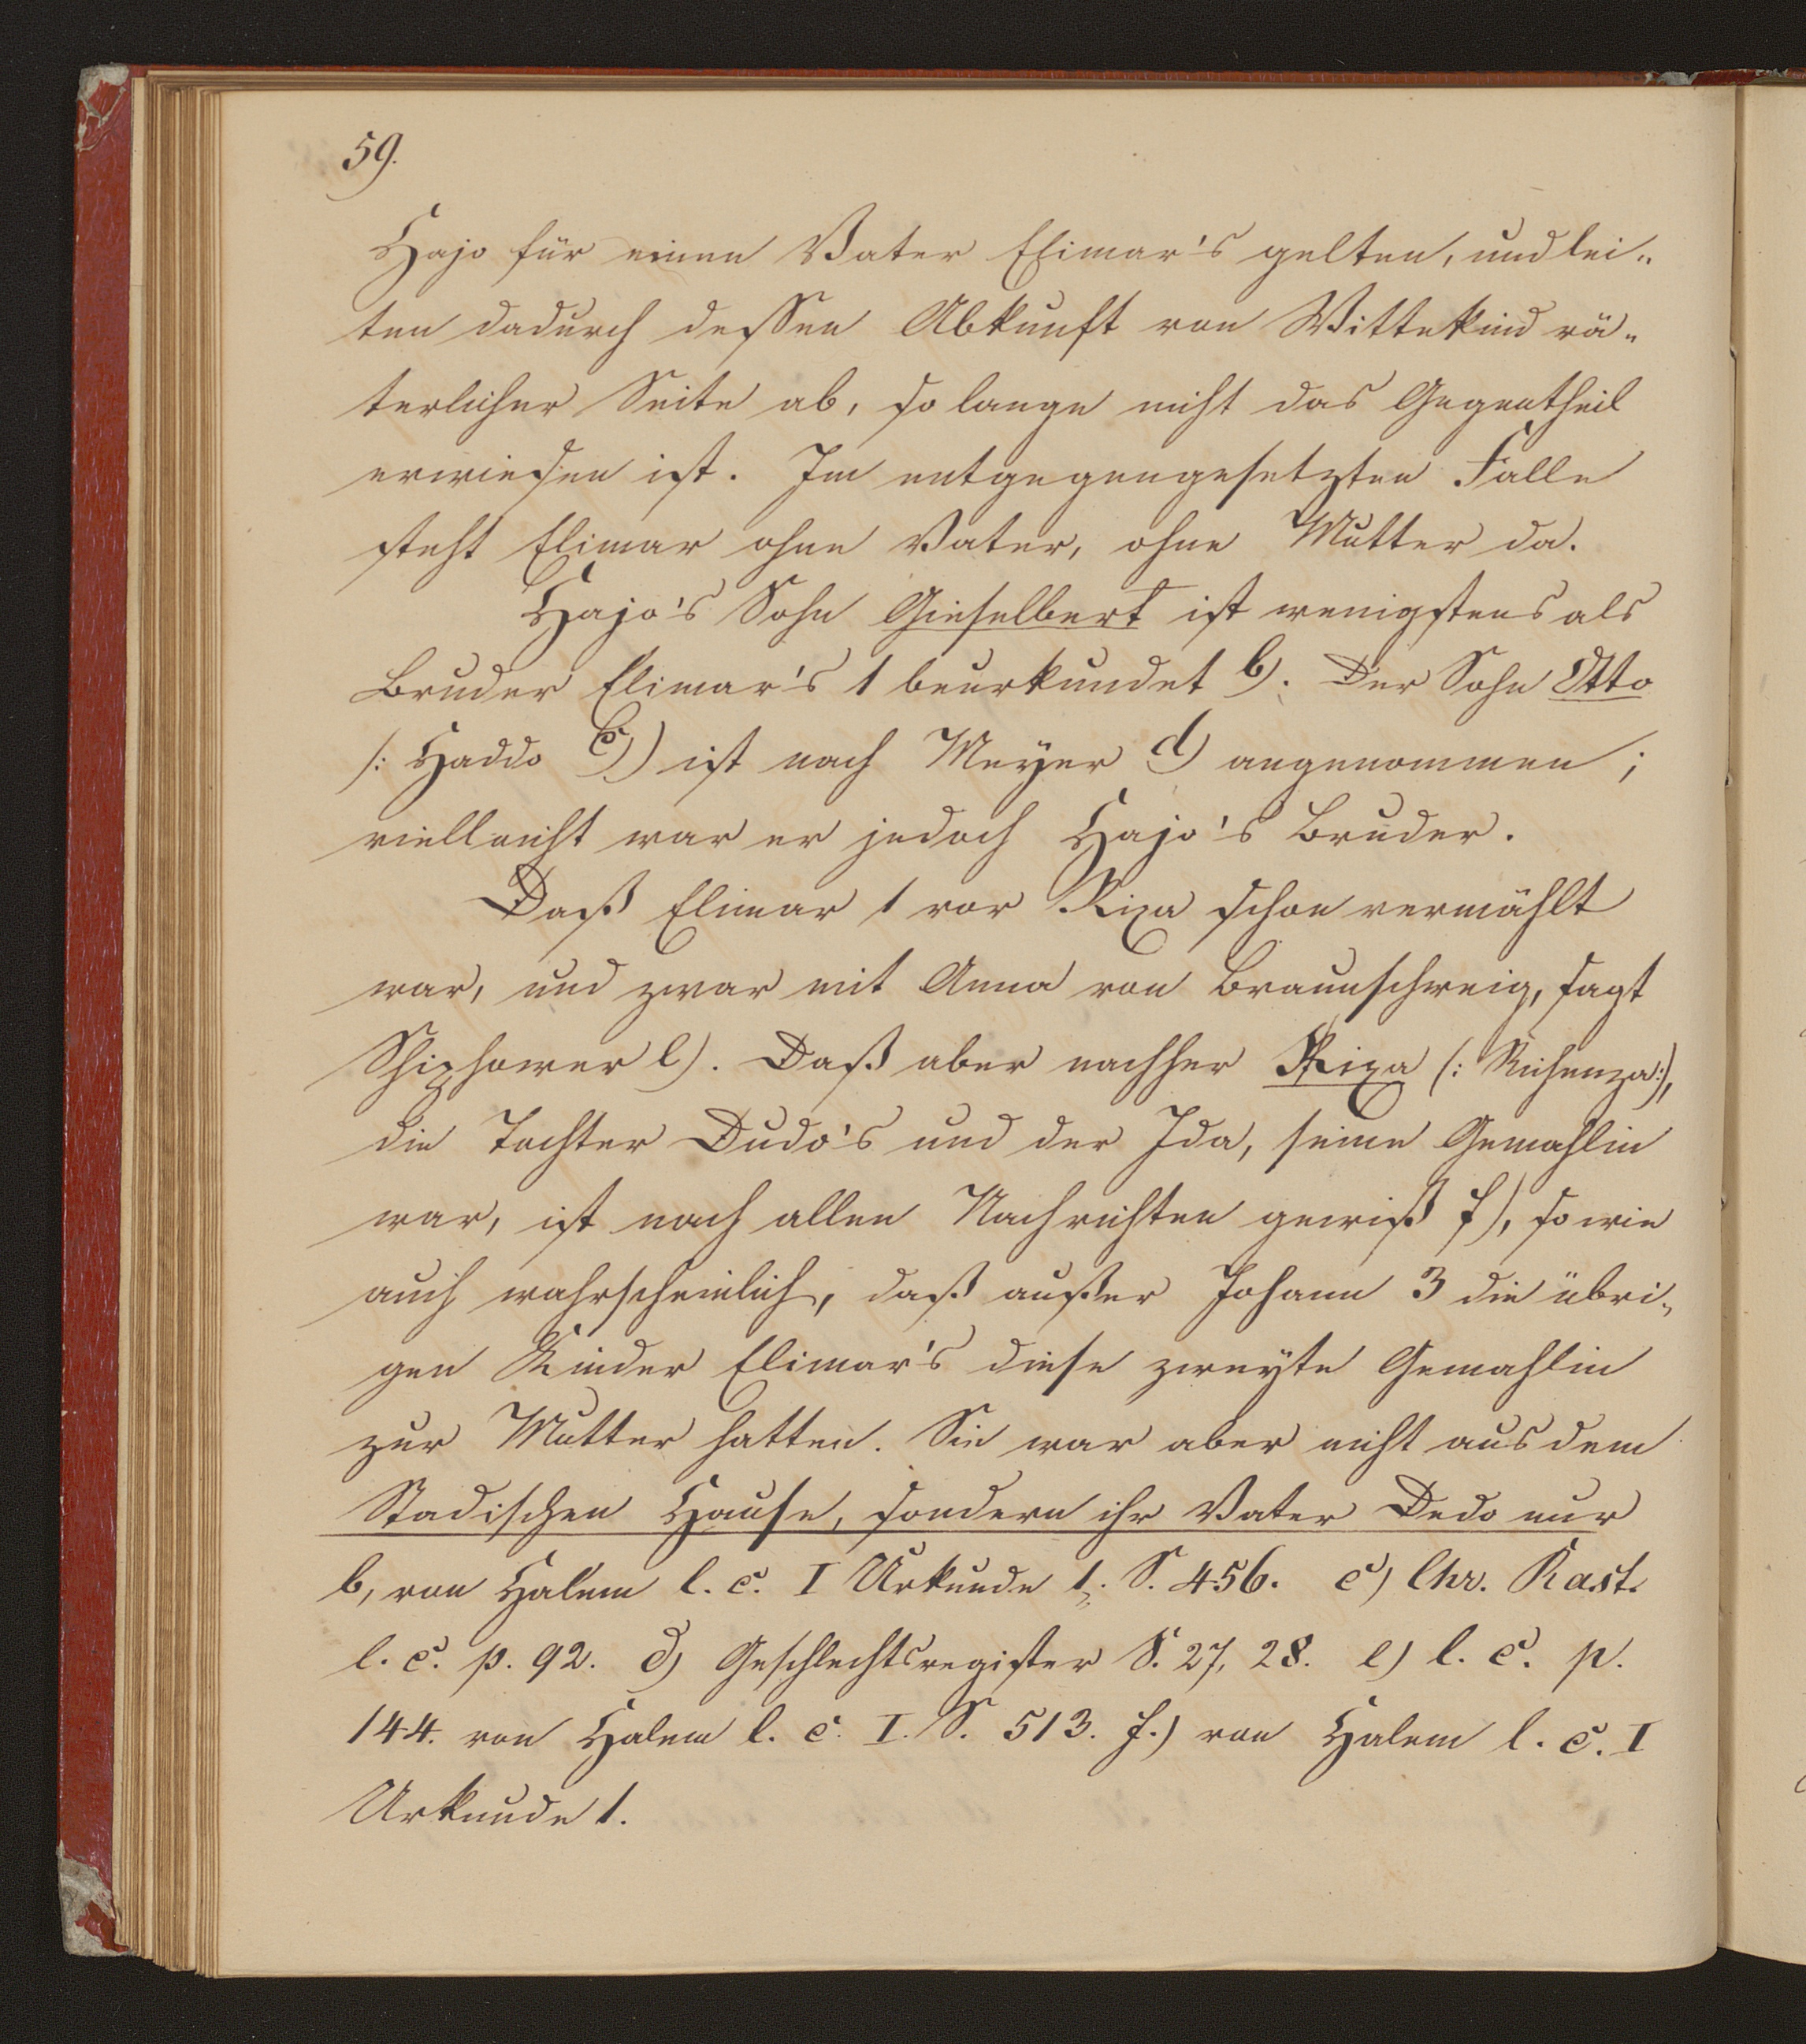 59.
Hajo für einen Vater Elimar's gelten, und lei„
ten dadurch dessen Abkunft von Wittekind vä„
terlicher Seite ab, so lange nicht das Gegentheil
erwiesen ist. Im entgegengesetzten Falle
steht Elimar ohne Vater, ohne Mutter da.
Hajo's Sohn Gieselbert ist wenigstens als
Bruder Elimar's 1 beurkundet b). Der Sohn Otto
/: Haddo c)) ist nach Meyer d) angenommen;
vielleicht war er jedoch Hajo's Bruder.
Daß Elimar 1 vor Rixa schon vermählt
war, und zwar mit Anna von Braunschweig, sagt
Schiphower e). Daß aber nachher Rixa (: Richenza:),
die Tochter Dudo's und der Ida, seine Gemahlin
war, ist nach allen Nachrichten gewiß f), so wie
auch wahrscheinlich, daß außer Johann 3 die übri„
gen Kinder Elimar's diese zweyte Gemahlin
zur Mutter hatten. Sie war aber nicht aus dem
Stadischen Hause, sondern ihr Vater Dedo nur
b, von Halem l. c. I Urkunde 1. S. 456. c) Chr. Rast.
l. c. p. 92. d) Geschlechtsregister S. 27, 28. e) l. c. p.
144. von Halem l. c. I. S. 513. f.) von Halem l. c. I
Urkunde 1.